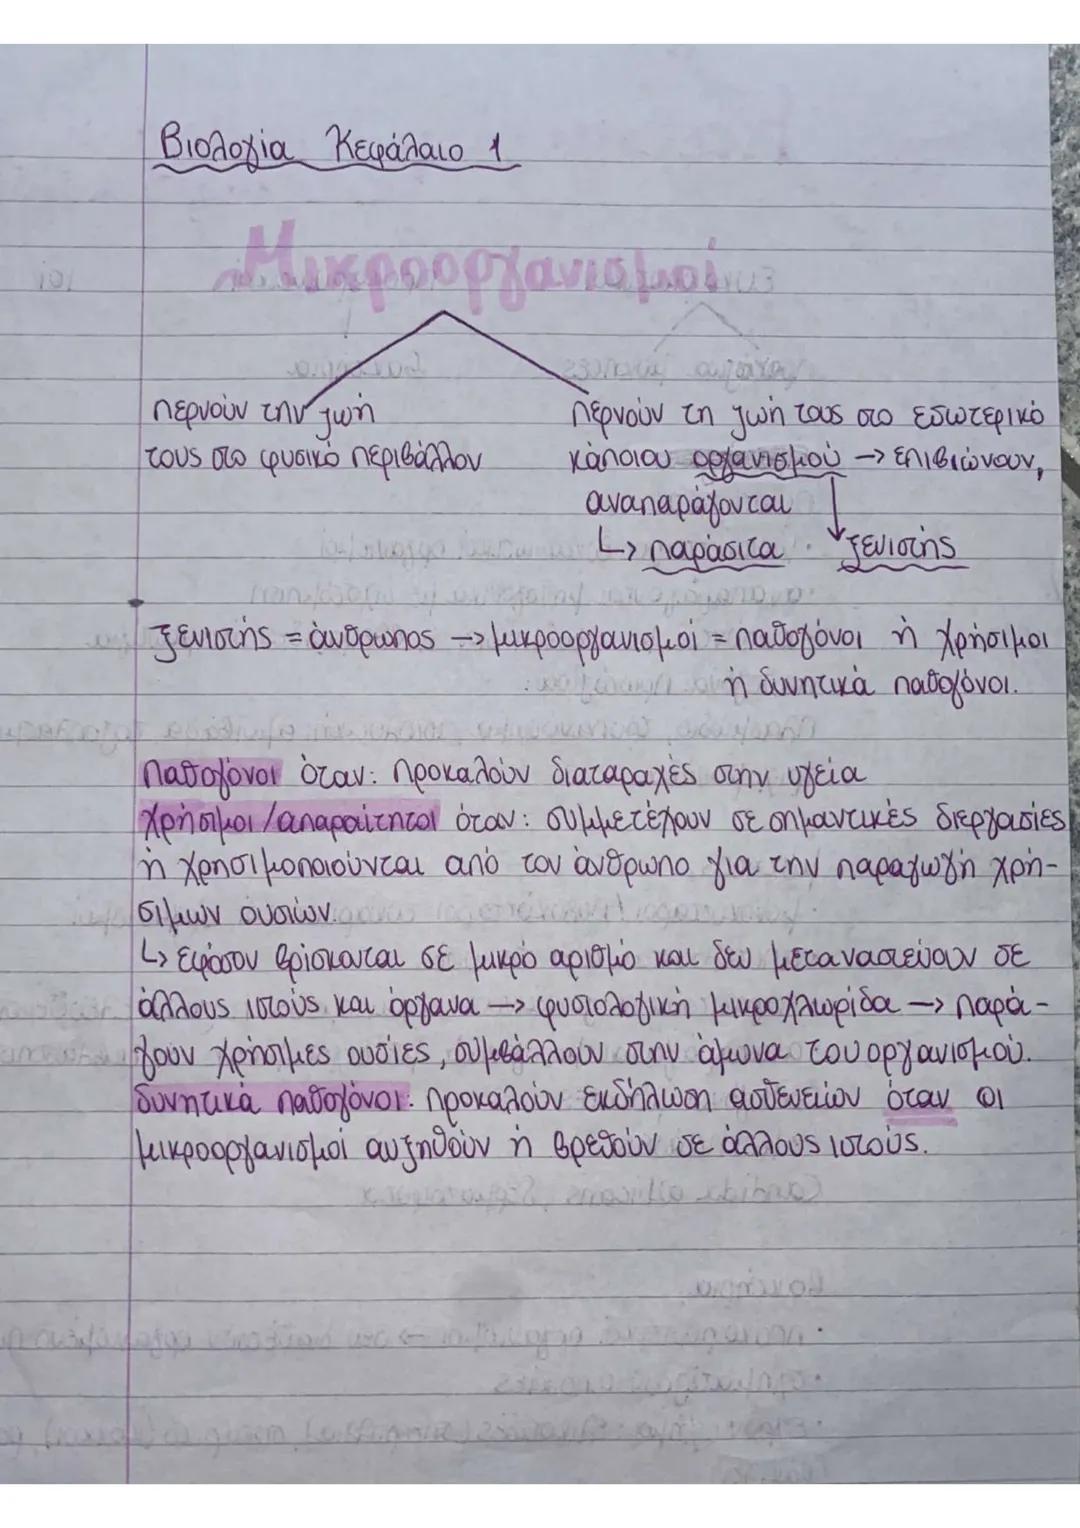 Βιολογία Κεφάλαιο 1
Μικροοργανισμοί
περνούν την ζωή
τους στο φυσικό περιβάλλον
περνούν τη ζωή τους στο εσωτερικό
κάποιου οργανισμού → επιβιώνουν,
αναπαράγονται
↳ παράσιτα
ξενιστής
ξενιστής = άνθρωπος → μικροοργανισμοί = παθογόνοι ή χρήσιμοι
ή δυνητικά παθογόνοι.
Παθογόνοι όταν: προκαλούν διαταραχές στην υγεία
Χρήσιμοι/απαραίτητοι όταν: συμμετέχουν σε σημαντικές διεργασίες
ή χρησιμοποιούνται από τον άνθρωπο για την παραγωγή χρή-
σιμων ουσιών.
↳ Εφόσον βρίσκονται σε μικρό αριθμό και δεν μεταναστεύουν σε
άλλους ιστούς και όργανα → φυσιολογική μικροχλωρίδα → παρά-
γουν χρήσιμες ουσίες, συμβάλλουν στην άμυνα του οργανισμού.
δυνητικά παθογόνοι: προκαλούν εκδήλωση ασθενειών όταν οι
μικροοργανισμοί αυξηθούν ή βρεθούν σε άλλους ιστούς.